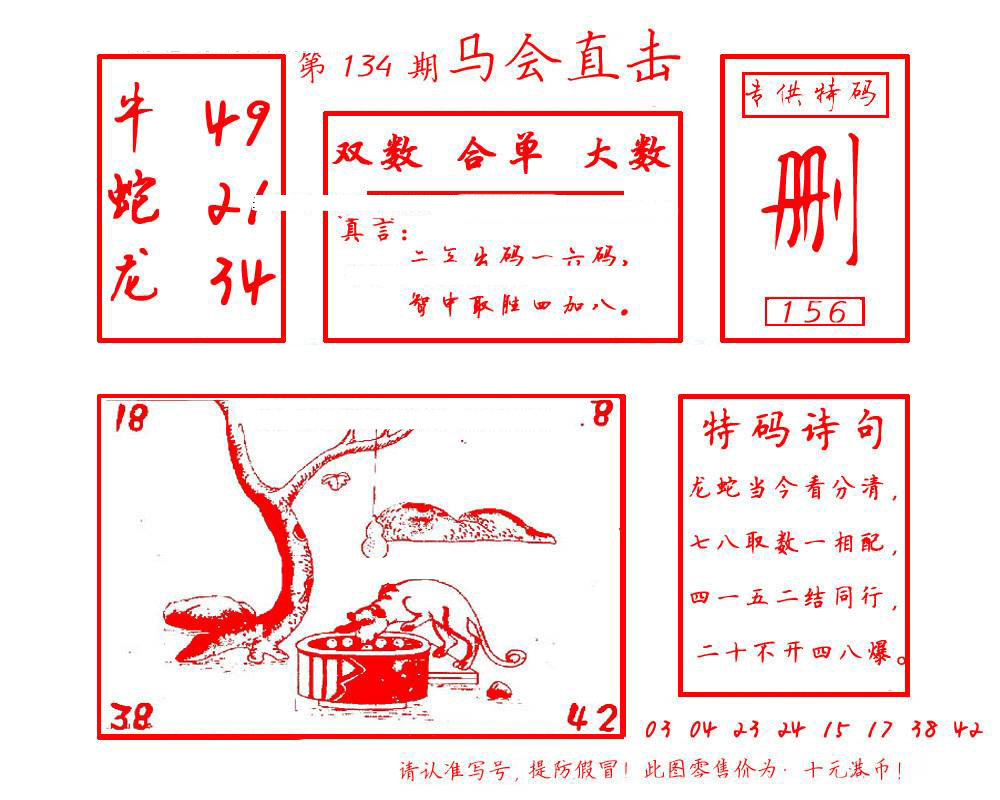 第 134 期 马会直击
牛 49
蛇 21
龙 34
双数 合单 大数
真言:
二至出码一六码,
智中取胜四加八。
专供特码
删
156
18
8
38
42
特码诗句
龙蛇当今看分清,
七八取数一相配,
四一五二结同行,
二十不开四八爆。
03 04 23 24 15 17 38 42
请认准写号,提防假冒!此图零售价为·十元港币!